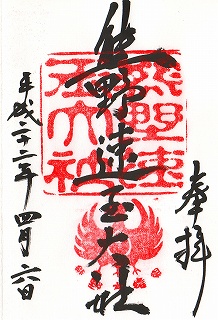 奉拝
熊野速玉大社
平成二十二年四月六日
熊野速玉大社